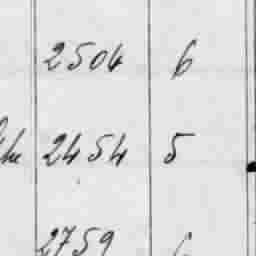 2504 6
2454 5
2759